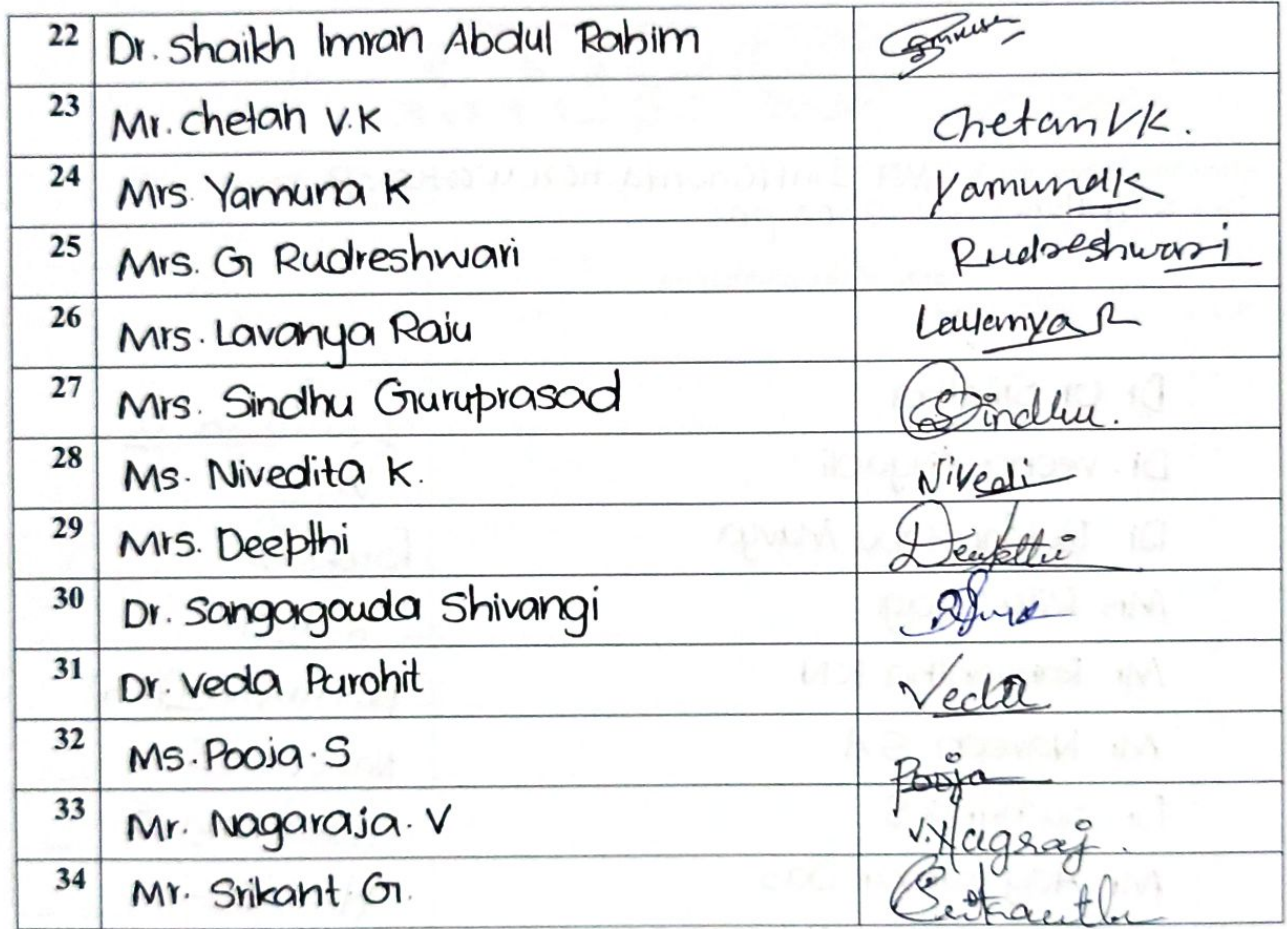 22 Dr. Shaikh Imran Abdul Rahim
23 Mr. Chetan V.K Chetan VK.
24 Mrs. Yamuna K Yamuna K
25 Mrs. G Rudreshwari Rudreshwari
26 Mrs. Lavanya Raju Lavanya R
27 Mrs. Sindhu Guruprasad Sindhu.
28 Ms. Nivedita K. Nivedi
29 Mrs. Deepthi Deepthi
30 Dr. Sangagouda Shivangi
31 Dr. Veda Purohit Veda
32 Ms. Pooja. S Pooja
33 Mr. Nagaraja. V V. Nagraj.
34 Mr. Srikant. G. Srikanth